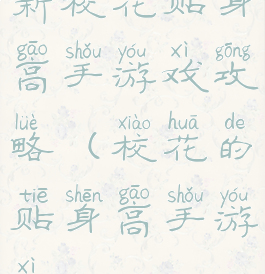 新校花贴身
gāo shǒu yóu xì gōng
高手游戏攻
lüè xiào huā de
略（校花的
tiē shēn gāo shǒu yóu
贴身高手游
xì